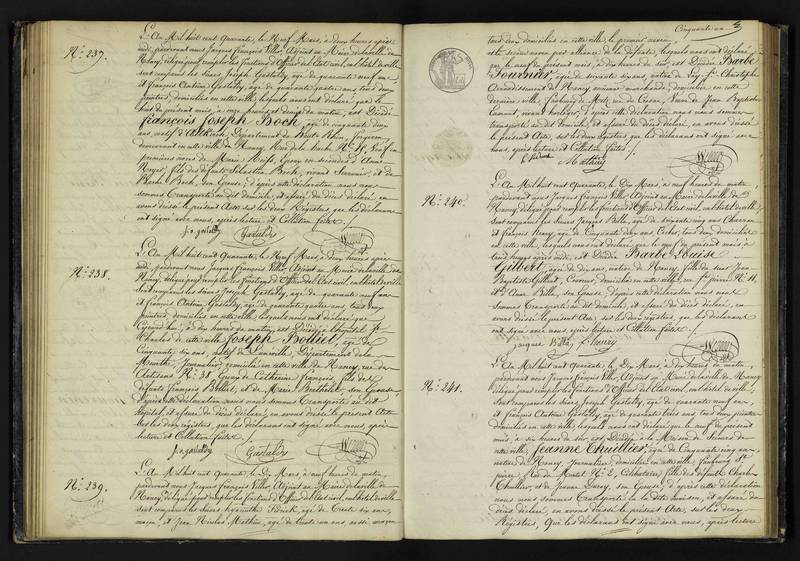 N.° 237.
L'An Mil huit cent Quarante, le Neuf Mars, à deux heures après
midi, pardevant nous Jacques François Adjoint au Maire de la ville de
Nancy, délégué pour remplir les fonctions d'Officier de l'Etat civil, en l'hôtel de ville
sont comparus les Sieurs Joseph Gastaldy, âgé de quarante neuf ans
et François Antoine Gastaldy, âgé de quarante quatre ans, tous deux
peintres, domiciliés en cette ville, lesquels nous ont déclaré que le
du présent mois, à heures et demie du matin, est Décédé
François Joseph Boch, âgé de cinquante deux
ans, natif d'Altkirch, Département du Haut-Rhin, forgeron,
demeurant en cette ville de Nancy, Rue de la N.°
premières noces de Marie Époux en secondes d'Anne
fils des défunts Sébastien Boch, vivant Serrurier, et de
Barbe Boch, son Épouse; d'après cette déclaration nous nous
sommes Transportés au dit domicile, et assuré du décès déclaré, en
avons dressé le présent Acte sur les deux Régistres, que les déclarans
ont signé avec nous, après lecture et Collation faites.
Gastaldy
N.° 238.
L'An Mil huit cent Quarante, le Neuf Mars, à deux heures après
midi, pardevant nous Jacques François Adjoint au Maire de la ville de
Nancy, délégué pour remplir les fonctions d'Officier de l'Etat civil, en l'hôtel de ville
sont comparus les Sieurs Joseph Gastaldy, âgé de quarante neuf ans
et François Antoine Gastaldy, âgé de quarante quatre ans, tous deux
peintres, domiciliés en cette ville, lesquels nous ont déclaré que
à dix heures du matin, est Décédé à l'hôpital St
Charles de cette ville Joseph Bolliet, âgé de
Cinquante six ans, natif de Département de la
Meurthe, Journalier, domicilié en cette ville de Nancy, rue des
Artisans N.° Époux de Catherine François, fils des
défunts François Bolliet, et de Marie son Épouse;
d'après cette déclaration nous nous sommes Transportés au dit
hôpital, et assuré du décès déclaré, en avons dressé le présent Acte
sur les deux régistres, que les déclarans ont signé avec nous, après
lecture et Collation faites.
Gastaldy
N.° 239.
L'An Mil huit cent Quarante, le Dix Mars à neuf heures du matin,
pardevant nous Jacques François Adjoint au Maire de la ville de
Nancy, délégué pour remplir les fonctions d'Officier de l'Etat civil, en l'hôtel de ville
sont comparus les Sieurs âgé de trente six ans,
maçon, et Jean Nicolas Mathieu, âgé de trente un ans, aussi maçon
Cinquante un
tous deux domiciliés en cette ville, le premier
et le second neveu par alliance de la défunte, lesquels nous ont déclaré
que le neuf du présent mois, à dix heures du soir, est Décédée Barbe
Fournier, âgée de soixante six ans, native de
Arrondissement de Nancy, domiciliée en cette
dernière ville, Veuve de Jean Baptiste
d'après cette déclaration nous nous sommes
transportés au dit domicile, et assuré du décès déclaré, en avons dressé
le présent Acte, sur les deux Régistres, que les déclarans ont signé avec
nous, après lecture et Collation faites.
Mathieu
N.° 240.
L'An Mil huit cent Quarante, le Dix Mars, à neuf heures du matin,
pardevant nous Jacques François Adjoint au Maire de la ville de
Nancy, délégué pour remplir les fonctions d'Officier de l'Etat civil, en l'hôtel de ville,
sont comparus les Sieurs Jacques Bille, âgé de soixante cinq ans
et François Henry, âgé de Cinquante deux ans, tous deux domiciliés
en cette ville, lesquels nous ont déclaré que le neuf du présent mois à
cinq heures après midi, est Décédée Barbe Louise
Gilbert, âgée de dix ans, native de Nancy, fille du Sieur Jean
Baptiste Gilbert, domicilié en cette ville, rue St N.° 11,
et d'Anne Bille, son épouse, d'après cette déclaration nous nous
sommes Transportés au dit domicile, et assuré du décès déclaré, en
avons dressé le présent Acte, sur les deux régistres, que les déclarans
ont signé avec nous, après lecture et Collation faites.
Jacques Bille f. henry
N.° 241.
L'An Mil huit cent Quarante, le Dix Mars, à dix heures du matin,
pardevant nous Jacques François Adjoint au Maire de la ville de Nancy
délégué pour remplir les fonctions d'Officier de l'Etat civil, en l'hôtel de ville,
sont comparus les Sieurs Joseph Gastaldy, âgé de quarante neuf ans,
et François Antoine Gastaldy, âgé de quarante trois ans, tous deux peintres
domiciliés en cette ville, lesquels nous ont déclaré que le neuf du présent
mois, à six heures du soir est Décédée à la Maison de Secours de
cette ville, Jeanne Thuillier, âgée de Cinquante cinq ans,
native de Nancy, Journalière, domiciliée en cette ville,
rue du N.° 2, célibataire, fille des défunts Charles
Thuillier, et de Jeanne son Épouse, d'après cette déclaration
nous nous sommes Transportés à la dite maison, et assuré du
décès déclaré, en avons dressé le présent Acte, sur les deux
Régistres, que les déclarans ont signé avec nous, après lecture